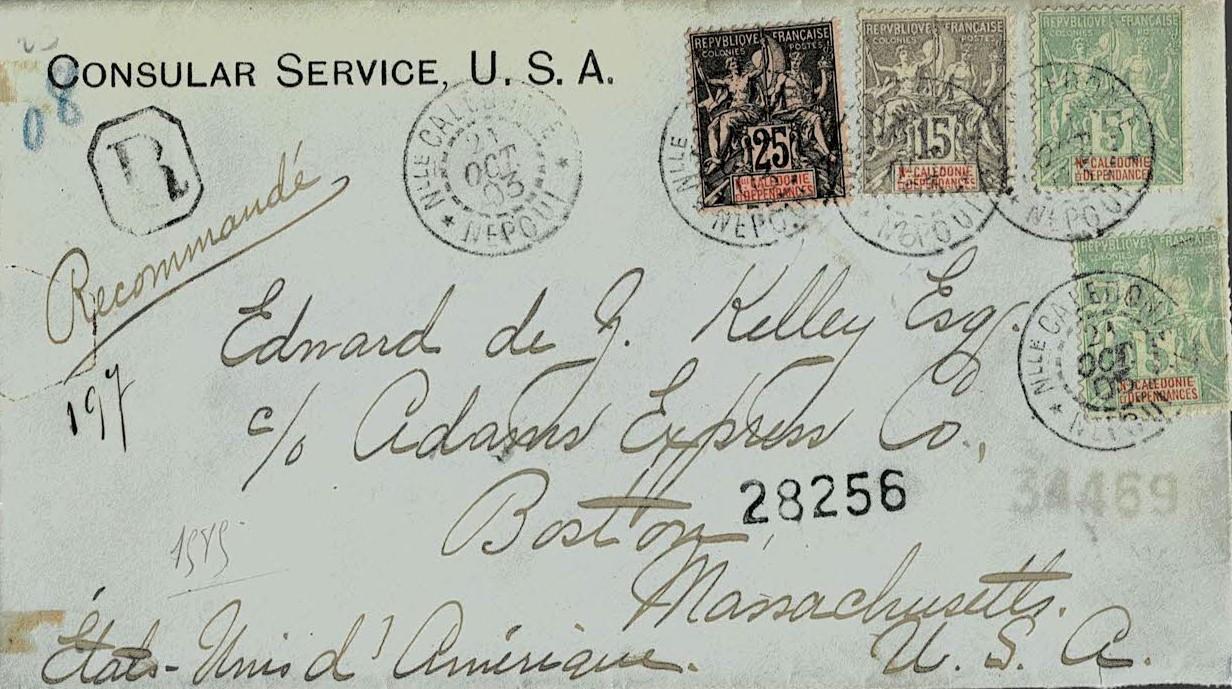 CONSULAR SERVICE, U. S. A.
08
R
Recommandé
197
NLLE CALEDONIE
21
OCT
05
NEPOUI
REPUBLIQUE FRANÇAISE
COLONIES POSTES
25
NLLE CALEDONIE
ET DEPENDANCES
REPUBLIQUE FRANÇAISE
COLONIES POSTES
15
NLLE CALEDONIE
ET DEPENDANCES
NEPOUI
REPUBLIQUE FRANÇAISE
5
NLLE CALEDONIE
ET DEPENDANCES
NEPOUI
NLLE CALEDONIE
ET DEPENDANCES
NLLE CALEDONIE
21
OCT
NEPOUI
Edward de J. Kelley Esq.
c/o Adams Express Co.,
Boston,
28256
34469
Massachusetts.
U. S. A.
États-Unis d'Amérique.